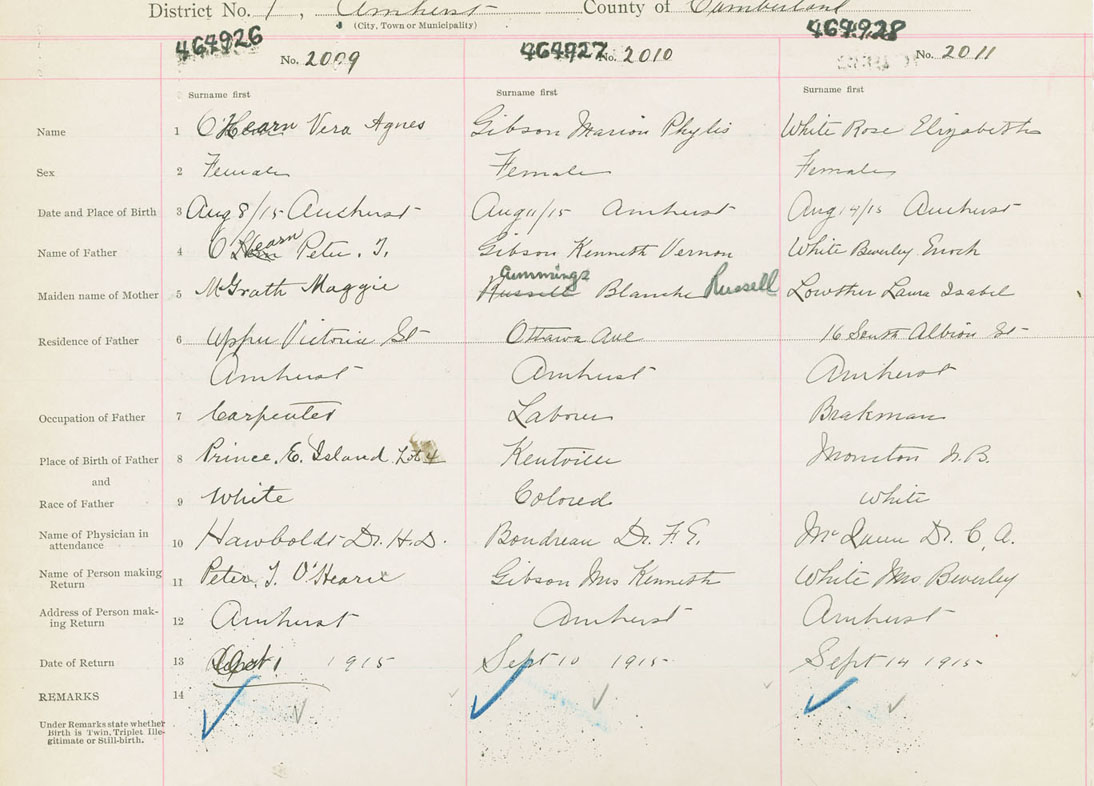 District No. 1, Amherst County of Cumberland
(City, Town or Municipality)
464926 464927 464928
No. 2009 No. 2010 No. 2011
Surname first Surname first Surname first
Name 1 O'Hearn Vera Agnes Gibson Marion Phylis White Rose Elizabeth
Sex 2 Female Female Female
Date and Place of Birth 3 Aug 8/15 Amherst Aug 11/15 Amherst Aug 14/15 Amherst
Name of Father 4 O'Hearn Peter. T. Gibson Kenneth Vernon White Beverley Enoch
Cummings
Maiden name of Mother 5 McGrath Maggie Russell Blanche Russell Lowther Laura Isabel
Residence of Father 6 Upper Victoria St Ottawa Ave 16 South Albion St
Amherst Amherst Amherst
Occupation of Father 7 Carpenter Laborer Brakman
Place of Birth of Father 8 Prince. E. Island Lot 4 Kentville Moncton N.B.
and
Race of Father 9 White Colored White
Name of Physician in
attendance 10 Hawboldt Dr. H.D. Boudreau Dr. F.E. Dr. C. A.
Name of Person making
Return 11 Peter. T. O'Hearn Gibson Mrs Kenneth White Mrs Beverley
Address of Person mak-
ing Return 12 Amherst Amherst Amherst
Date of Return 13 Oct 1 1915 Sept 10 1915 Sept 14 1915
REMARKS 14
Under Remarks state whether
Birth is Twin, Triplet Ille-
gitimate or Still-birth.